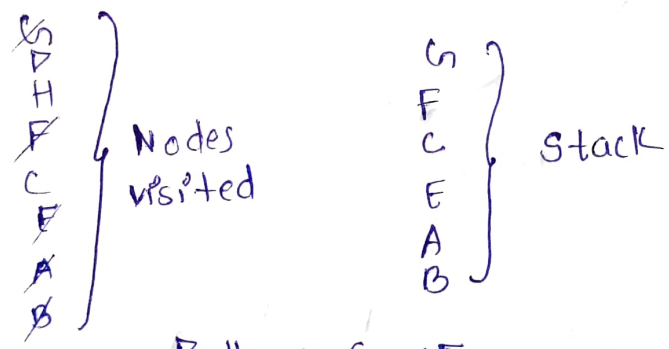 D
H
F
C
E
A
B
Nodes
visited
G
F
C
E
A
B
Stack